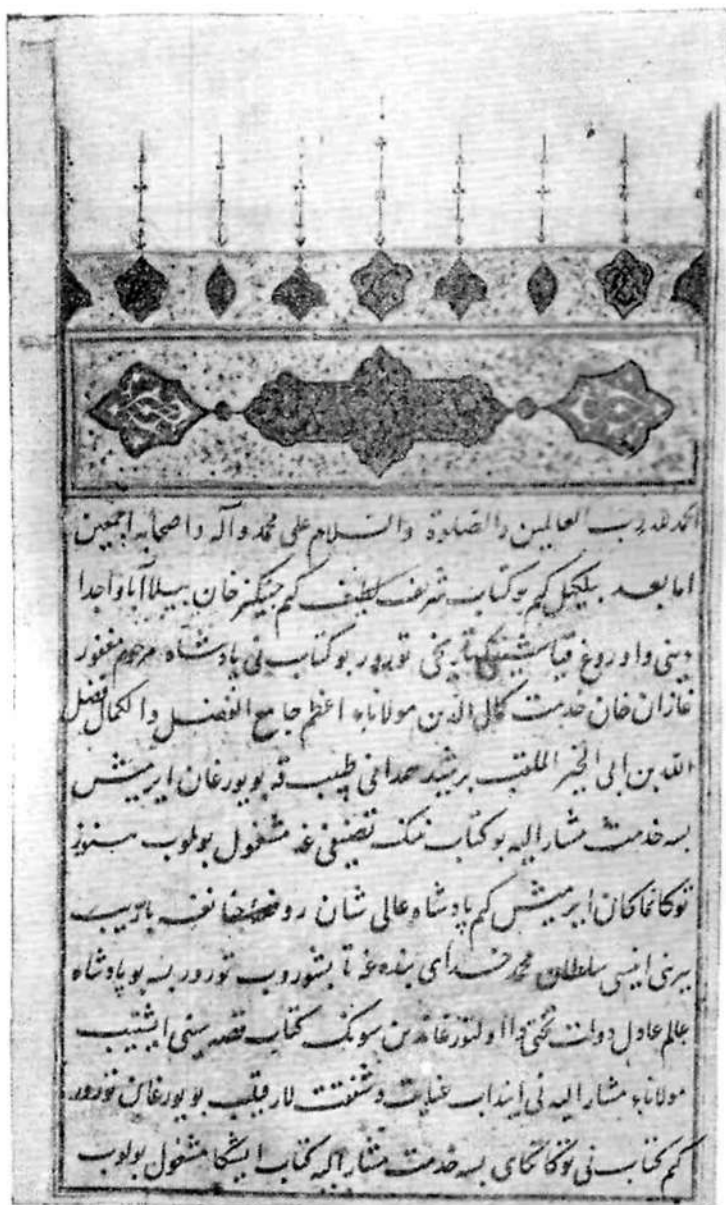 الحمد لله رب العالمین والصلوة والسلام علی محمد وآله واصحابه اجمعین
اما بعد بیلکیل کم بو کتاب شریف لطیف کم جینکیز خان بیلا آبا واجدا
دینی واوروغ قیاشینینک تاریخی تورور بو کتاب نی پادشاه مرحوم مغفور
غازان خان خدمت کمال الدین مولاناء اعظم جامع الفضل والکمال فضل
الله بن ابی الخیر الملقب برشید همدانی طبیب قه بویورغان ایرمیش
بسه خدمت مشار الیه بو کتاب ننک تصنیفی غه مشغول بولوب هنوز
توکاتماکان ایرمیش کم پادشاه عالی شان روضهٔ جنانغه باریب
بیرنی اینیسی سلطان محمد خدای بنده غه تابشوروب تورور بسه بو پادشاه
عالم عادل دولت تختی دا اولتورغاندین سونک کتاب قصه سینی ایشتیب
مولاناء مشار الیه نی اینداب عنایت و شفقت لار قیلیب بویورغان تورور
کم کتاب نی توکاتکای بسه خدمت مشار الیه کتاب ایشیکا مشغول بولوب